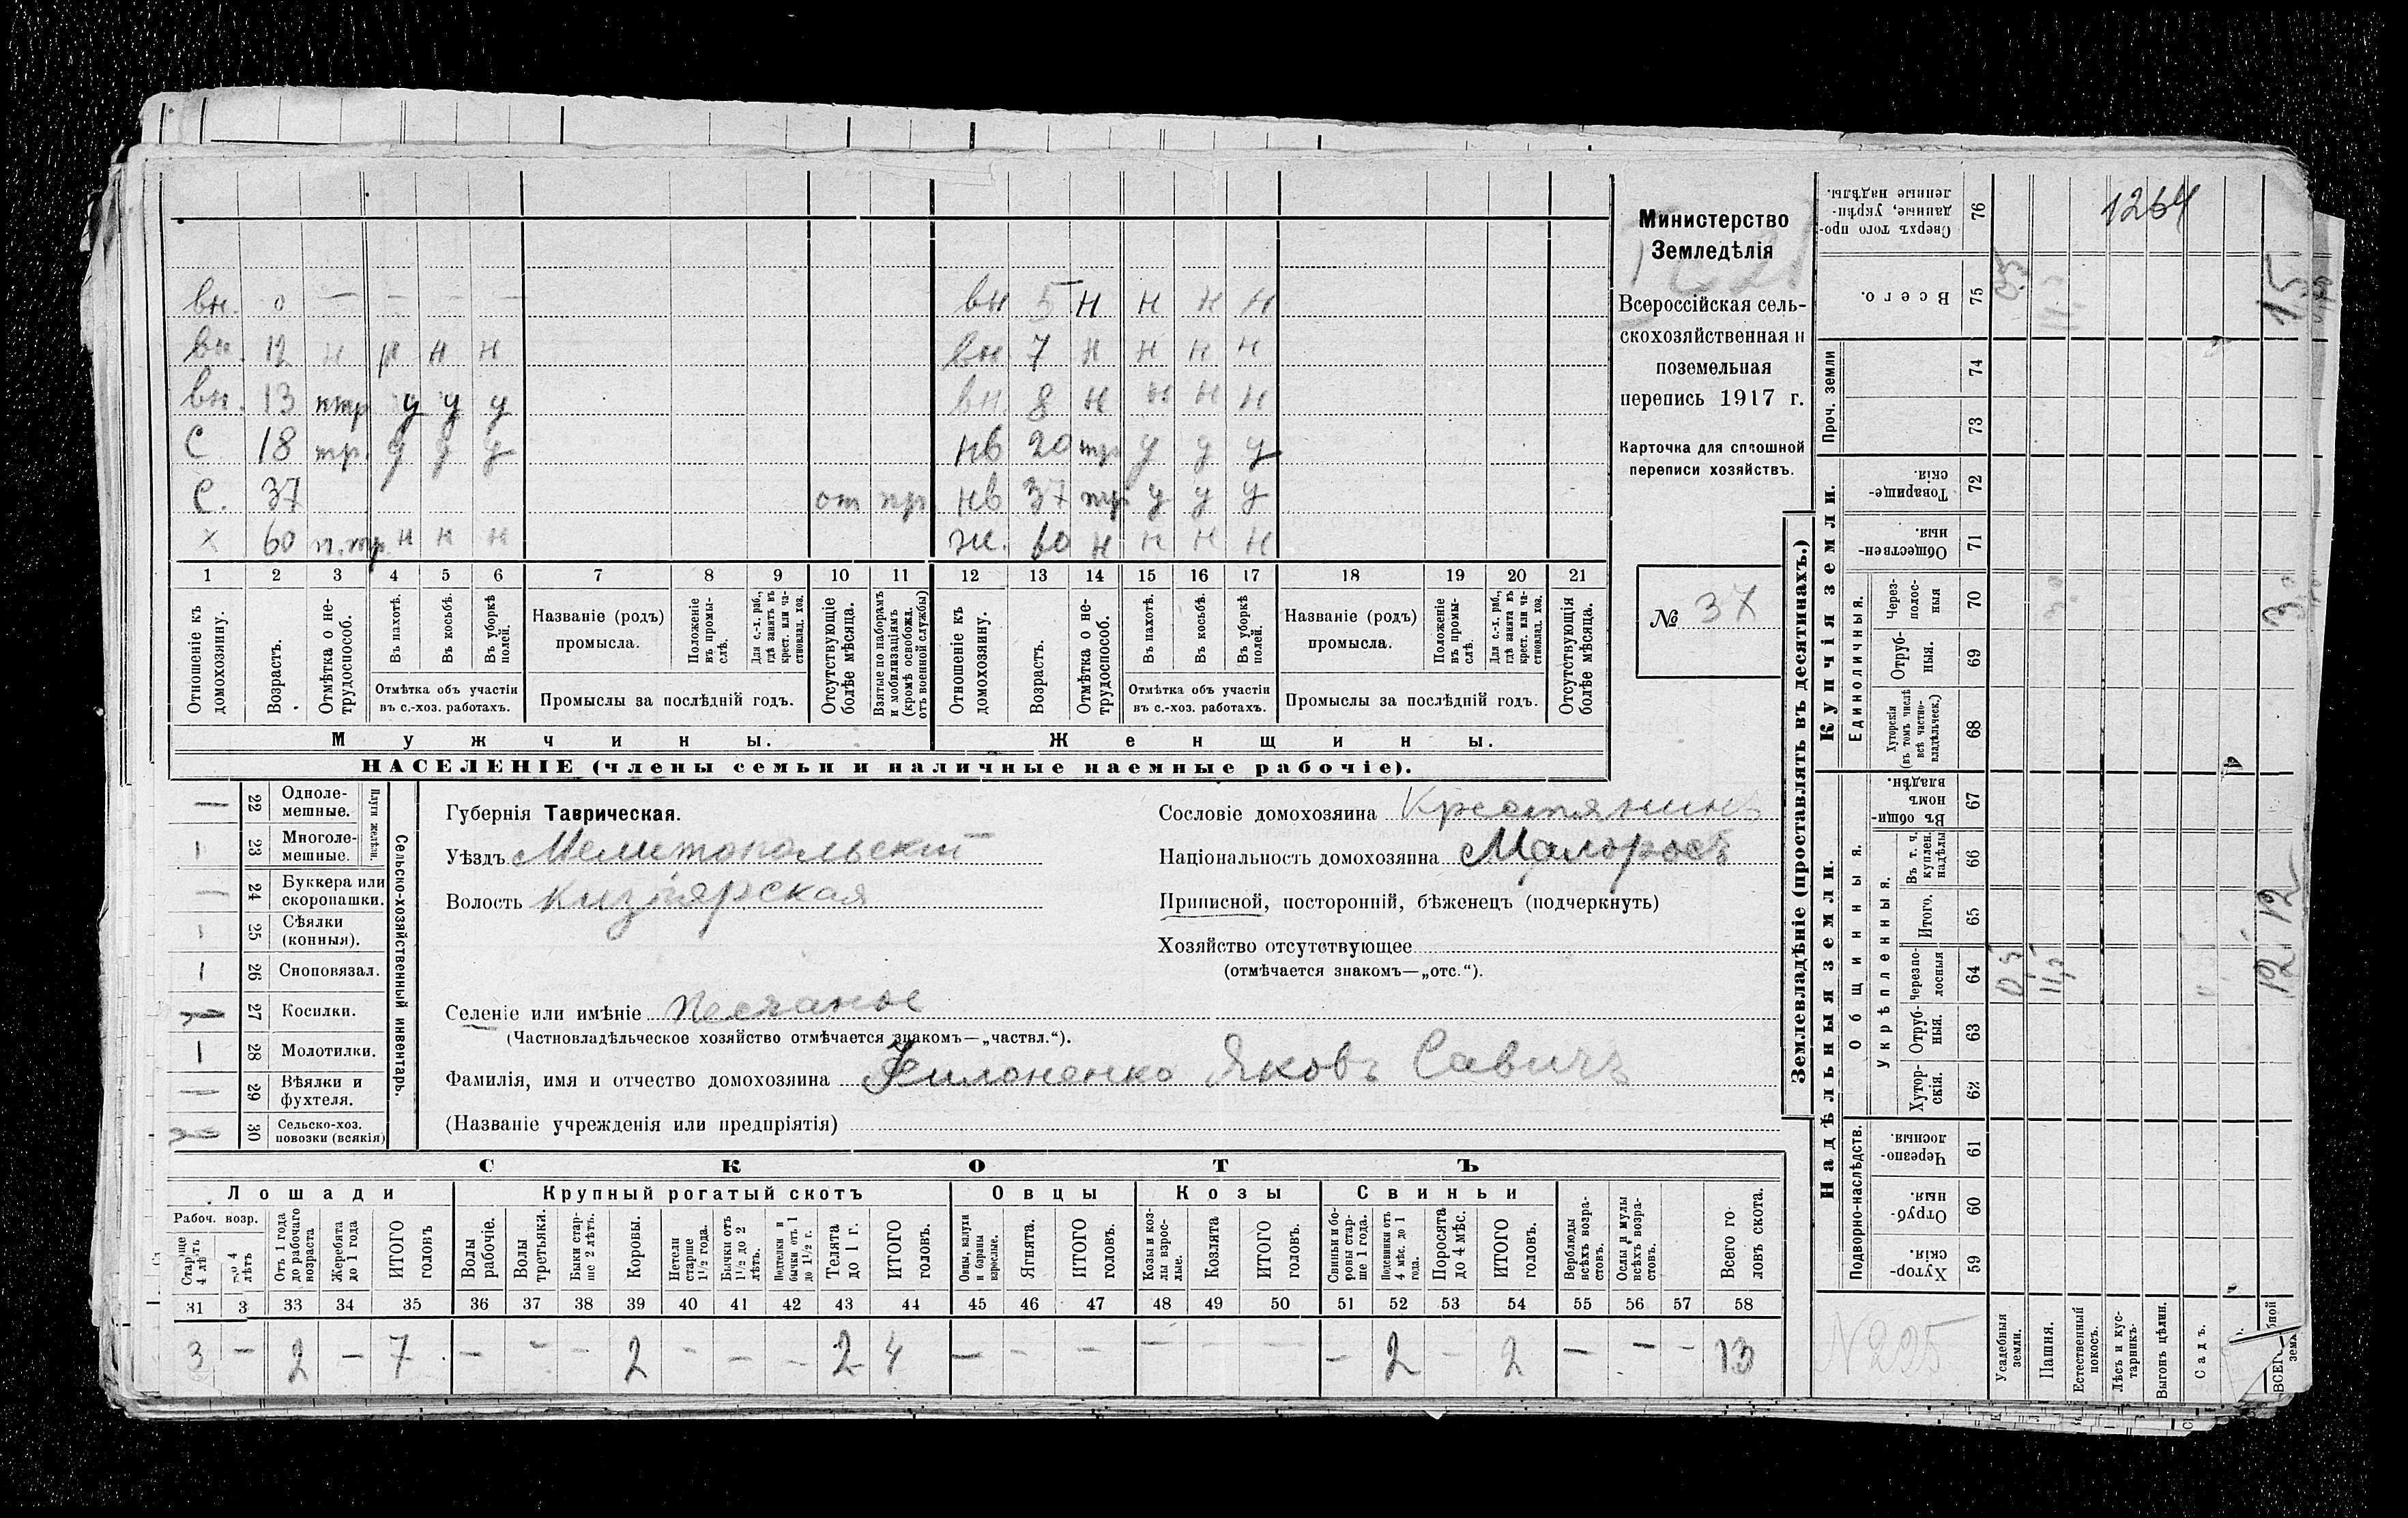 вн. 0 — — — — вн 5 н н н н
вн. 12 н н н н вн 7 н н н н
вн. 13 птр у у у вн. 8 н н н н
С 18 тр. у у у нв 20 тр у у у
С. 37 от пр нв 37 тр у у у
х 60 п.тр. н н н ж. 60 н н н н
1 2 3 4 5 6 7 8 9 10 11 12 13 14 15 16 17 18 19 20 21
Отношеніе къ домохозяину.
Возрастъ.
Отмѣтка о не-
трудоспособ.
Въ пахотѣ.
Въ косьбѣ.
Въ уборкѣ полей.
Отмѣтка объ участіи
въ с.-хоз. работахъ.
Названіе (родъ)
промысла.
Положеніе въ промы-
слѣ.
Для с.-х. раб., гдѣ занятъ въ крест. или ча-
стновлад. хоз.
Промыслы за послѣдній годъ.
Отсутствующіе болѣе мѣсяца.
Взятые по наборамъ и мобилизаціямъ (кромѣ освобожд. отъ военной службы)
Отношеніе къ домохозяину.
Возрастъ.
Отмѣтка о не-
трудоспособ.
Въ пахотѣ.
Въ косьбѣ.
Въ уборкѣ полей.
Отмѣтка объ участіи
въ с.-хоз. работахъ.
Названіе (родъ)
промысла.
Положеніе въ промы-
слѣ.
Для с.-х. раб., гдѣ занята въ крест. или ча-
стновлад. хоз.
Промыслы за послѣдній годъ.
Отсутствующія болѣе мѣсяца.
Мужчины. Женщины.
НАСЕЛЕНІЕ (члены семьи и наличные наемные рабочіе).
Министерство
Земледѣлія
Всероссійская сель-
скохозяйственная и
поземельная
перепись 1917 г.
Карточка для сплошной
переписи хозяйствъ.
№ 37
Сельско-хозяйственный инвентарь.
Плуги желѣзн.
— 22 Одноле-
мешные.
1 23 Многоле-
мешные.
— 24 Буккера или
скоропашки.
1 25 Сѣялки
(конныя).
1 26 Сноповязал.
27 Косилки.
1 28 Молотилки.
— 29 Вѣялки и
фухтеля.
30 Сельско-хоз.
повозки (всякія)
Губернія Таврическая.
Уѣздъ Мелитопольскій
Волость Кизіярская
Селеніе или имѣніе Песчаное
(Частновладѣльческое хозяйство отмѣчается знакомъ—„частвл.“).
Фамилія, имя и отчество домохозяина Филоненко Яковъ Савичъ
(Названіе учрежденія или предпріятія)
Сословіе домохозяина Крестянинъ
Національность домохозяина Малоросъ
Приписной, посторонній, бѣженецъ (подчеркнуть)
Хозяйство отсутствующее
(отмѣчается знакомъ—„отс.“).
СКОТЪ
Лошади Крупный рогатый скотъ Овцы Козы Свиньи
Рабоч. возр.
Старше 4 лѣтъ
до 4 лѣтъ
Отъ 1 года до рабочаго возраста
Жеребята до 1 года
ИТОГО головъ
Волы рабочіе.
Волы третьяки.
Быки стар-
ше 2 лѣтъ.
Коровы.
Нетели старше 1½ года.
Бычки отъ 1½ до 2 лѣтъ.
Подтелки и бычки отъ 1 до 1½ г.
Телята до 1 г.
ИТОГО головъ.
Овцы, валухи и бараны взрослые.
Ягнята.
ИТОГО головъ.
Козы и коз-
лы взрос-
лые.
Козлята
ИТОГО головъ.
Свиньи и бо-
ровы стар-
ше 1 года.
Подсвинки отъ 4 мѣс. до 1 года.
Поросята до 4 мѣс.
ИТОГО головъ.
Верблюды всѣхъ возра-
стовъ.
Ослы и мулы всѣхъ возра-
стовъ.
Всего го-
ловъ скота.
31 3 33 34 35 36 37 38 39 40 41 42 43 44 45 46 47 48 49 50 51 52 53 54 55 56 57 58
3 — 2 — 7 — — — 2 — — — 2 4 — — — — — — — 2 — 2 — — — 13
Землевладѣніе (проставлять въ десятинахъ.)
Надѣльныя земли. Купчія земли. Проч. земли
Подворно-наслѣдств. Общинныя. Укрѣпленныя. Единоличныя.
Сверхъ того про-
данные, укрѣп-
ленные надѣлы. 76
Всего. 75
74
73
Товарище-
скія. 72
Обществен-
ныя. 71
Через-
полос-
ныя 70
Отруб-
ныя. 69
Хуторскія (въ томъ числѣ всѣ частно-
владѣльческ.) 68
Въ общин-
номъ владѣн. 67
Въ т. ч. куплен. надѣлы 66
Итого. 65
Черезпо-
лосныя 64
Отруб-
ныя. 63
Хутор-
скія. 62
Черезпо-
лосныя. 61
Отруб-
ныя. 60
Хутор-
скія. 59
Усадебныя земли.
Пашня.
Естественный покосъ.
Лѣсъ и кус-
тарникъ.
Выгонъ цѣлин.
Садъ.
1264
0,5
11,5
15
3
12 12
N 225